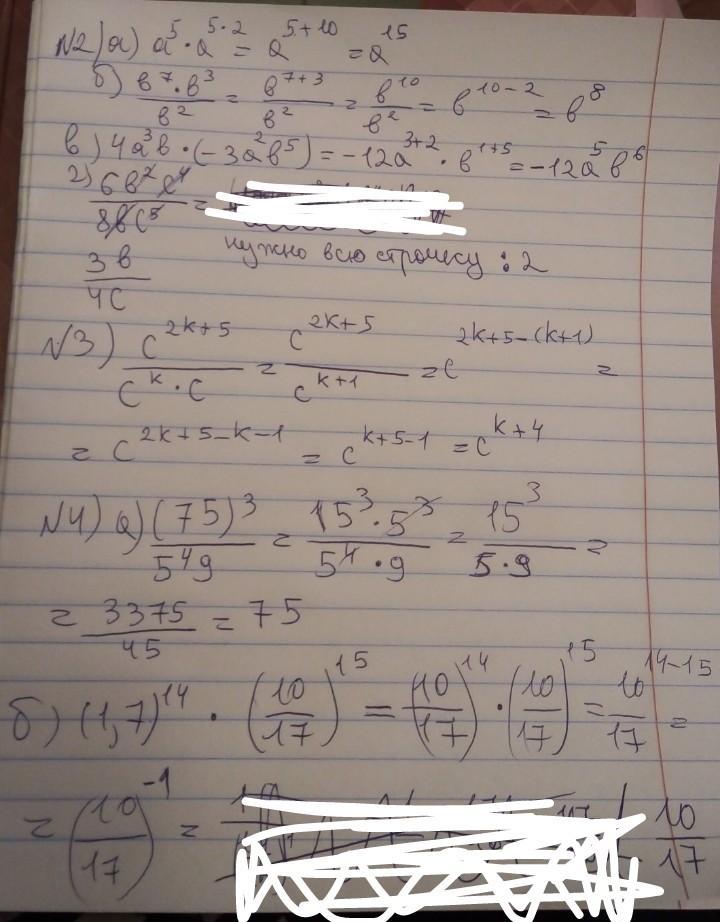 N2) а) a^5 · a^{5·2} = a^{5+10} = a^{15}
б) \frac{b^7 · b^3}{b^2} = \frac{b^{7+3}}{b^2} = \frac{b^{10}}{b^2} = b^{10-2} = b^8
в) 4a^3b · (-3a^2b^5) = -12a^{3+2} · b^{1+5} = -12a^5b^6
г) \frac{6b^2c^4}{8bc^5} =
нужно всю строчку : 2
\frac{3b}{4c}
N3) \frac{c^{2k+5}}{c^k · c} = \frac{c^{2k+5}}{c^{k+1}} = c^{2k+5-(k+1)} =
= c^{2k+5-k-1} = c^{k+5-1} = c^{k+4}
N4) а) \frac{(75)^3}{5^4 9} = \frac{15^3 · 5^3}{5^4 · 9} = \frac{15^3}{5·9} =
= \frac{3375}{45} = 75
б) (1,7)^{14} · (\frac{10}{17})^{15} = (\frac{10}{17})^{14} · (\frac{10}{17})^{15} = \frac{10}{17}^{14-15} =
= (\frac{10}{17})^{-1} = \frac{10}{17}